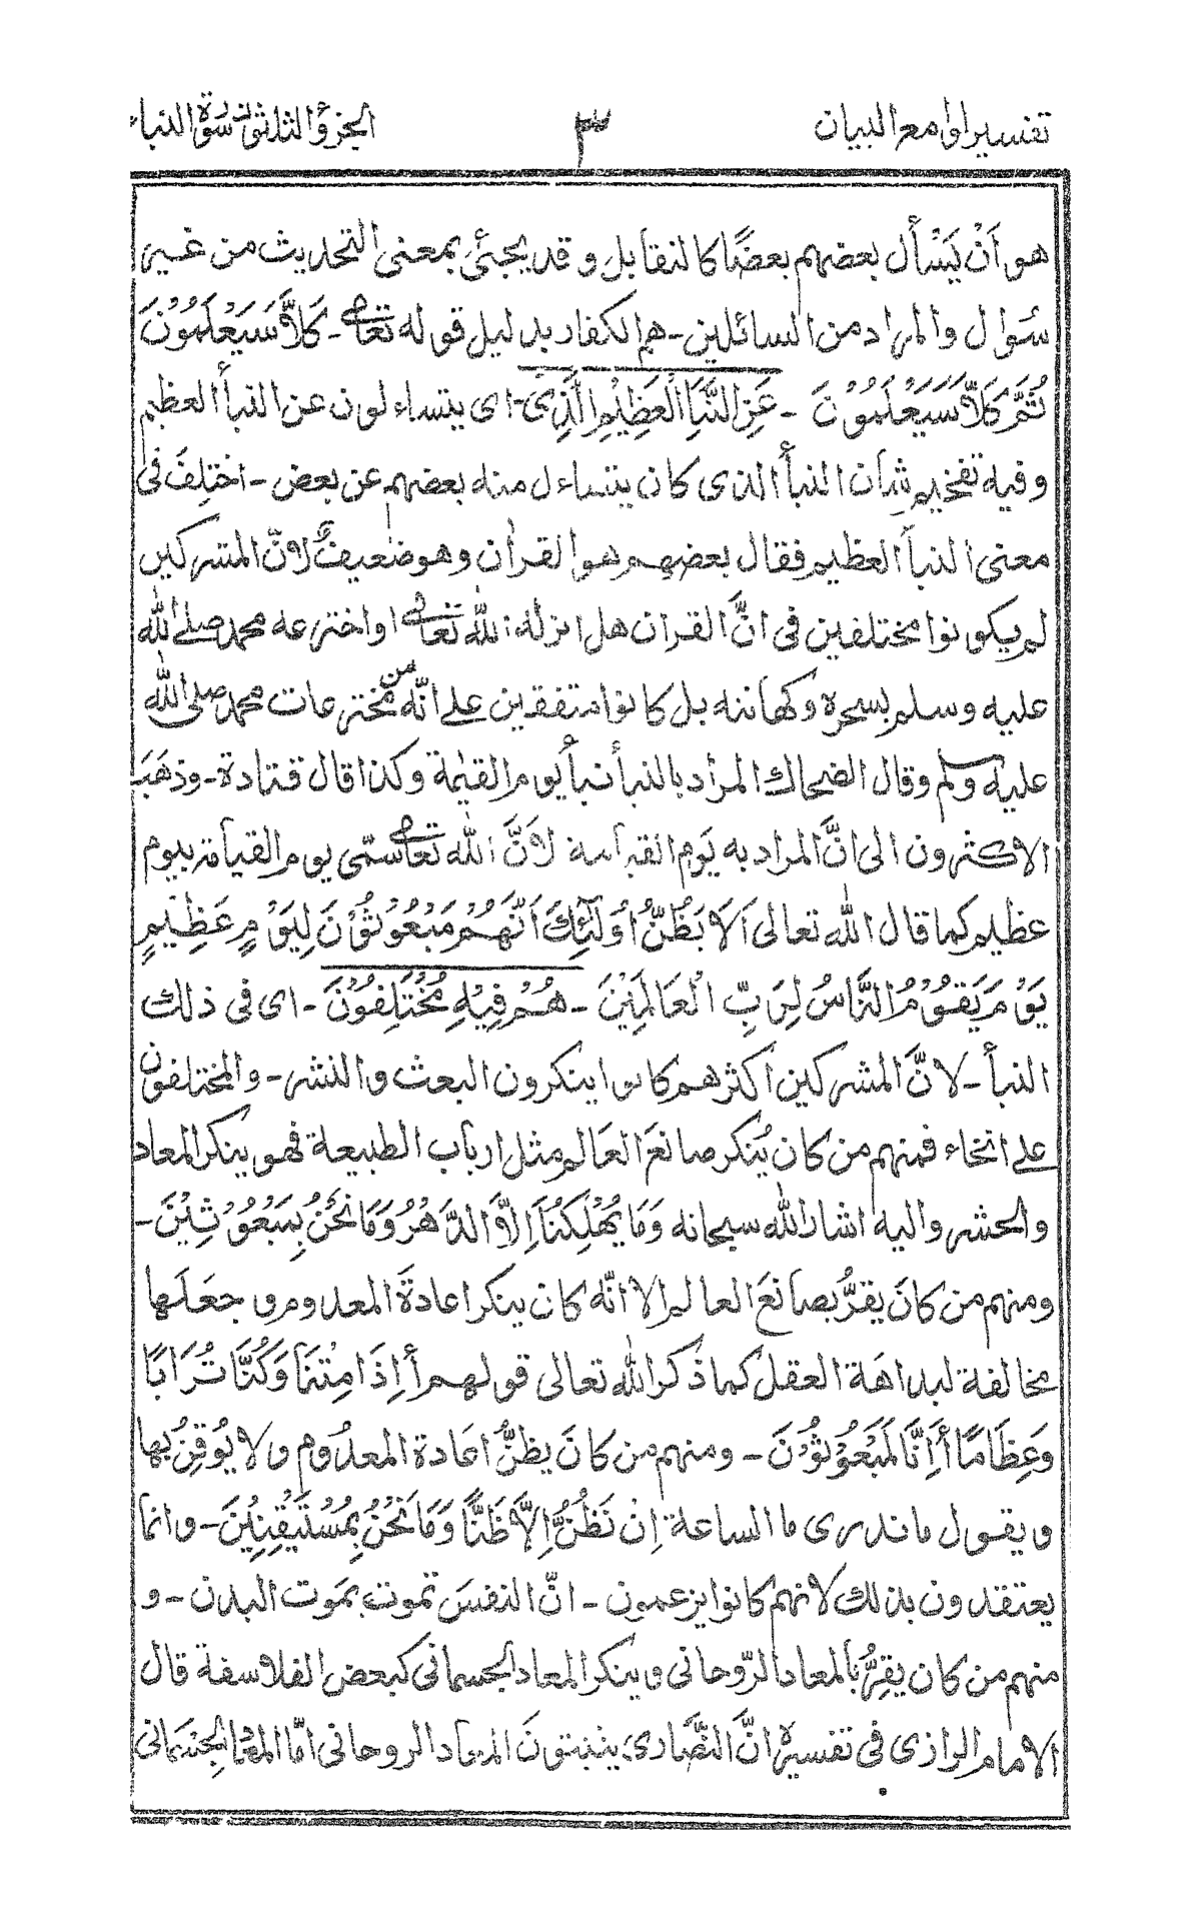 تفسير لوامع البيان ٣ الجزؤ الثلثون سورة النباء
هو اَنْ يَسْأَل بعضهم بعضًا كالتقابل و قد يجئى بمعنى التحديث من غير
سُوال والمراد من السائلين ـ هم الكفار بدليل قوله تعالى ـ كَلَّا سَيَعْلَمُوْنَ
ثُمَّ كَلَّا سَيَعْلَمُوْنَ ـ عَنِ النَّبَإِ الْعَظِيْمِ الَّذِى ـ اى يتساءلون عن النبأ العظيم
وفيه تفخيم شأن النبأ الذى كان يتساءل منه بعضهم عن بعض ـ اختلِفَ فى
معنى النبأ العظيم فقال بعضهم هو القران وهو ضعيفٌ لانّ المشركين
لم يكونوا مختلفين فى انَّ القران هل انزله الله تعالى او اخترعه محمد صلى الله
عليه وسلم بسحره وكهانته بل كانوا متفقين على انّه من مخترعات محمد صلى الله
عليه وسلم وقال الضحاك المراد بالنبأ نبأ يوم القيٰمة وكذا قال قتادة ـ وذهَبَ
الاكثرون الى انَّ المراد به يَوم القيامة لاَنَّ الله تعالى سمّى يوم القيامة بيوم
عظيم كما قال الله تعالى اَلَا يَظُنُّ اُولٰئِكَ اَنَّهُمْ مَبْعُوْثُوْنَ لِيَوْمٍ عَظِيْمٍ
يَوْمَ يَقُوْمُ النَّاسُ لِرَبِّ الْعَالَمِيْنَ ـ هُمْ فِيْهِ مُخْتَلِفُوْنَ ـ اى فى ذلك
النبأ ـ لانَّ المشركين اكثرهم كانوا ينكرون البعث والنشر ـ والمختلفون
على انحاء فمنهم من كان يُنكر صانعَ العَالم مثل ارباب الطبيعة فهو ينكر المعاد
والحشر واليه اشار الله سبحانه وَمَا يُهْلِكُنَا اِلَّا الدَّهْرُ وَمَا نَحْنُ بِمَبْعُوْثِيْنَ ـ
ومنهم من كانَ يقرُّ بصانعَ العالم الا انّه كان ينكر اعادةَ المعدوم و جعَلَها
مخالفة لبداهَة العقل كما ذكر الله تعالى قولهم أَاِذَا مِتْنَا وَكُنَّا تُرَابًا
وَعِظَامًا أَاِنَّا لَمَبْعُوْثُوْنَ ـ ومنهم من كانَ يظنُّ اعَادة المعدُوم ولا يُوقِنُ بها
ويقول ماندرى ما الساعة اِن نَظُنُّ اِلَّا ظَنًّا وَمَا نَحْنُ بِمُسْتَيْقِنِيْنَ ـ وانما
يعتقدون بذلك لانهم كانوا يزعمون ـ انّ النفسَ تموت بمَوت البدن ـ و
منهم من كان يقِرُّ بالمعاد الرّوحانى وينكر المعاد الجسمانى كبعض الفلاسفة قال
الامام الرازى فى تفسيره انَّ النَّصَارى يثبتونَ المعاد الروحانى امّا المعاد الجسْمَانى